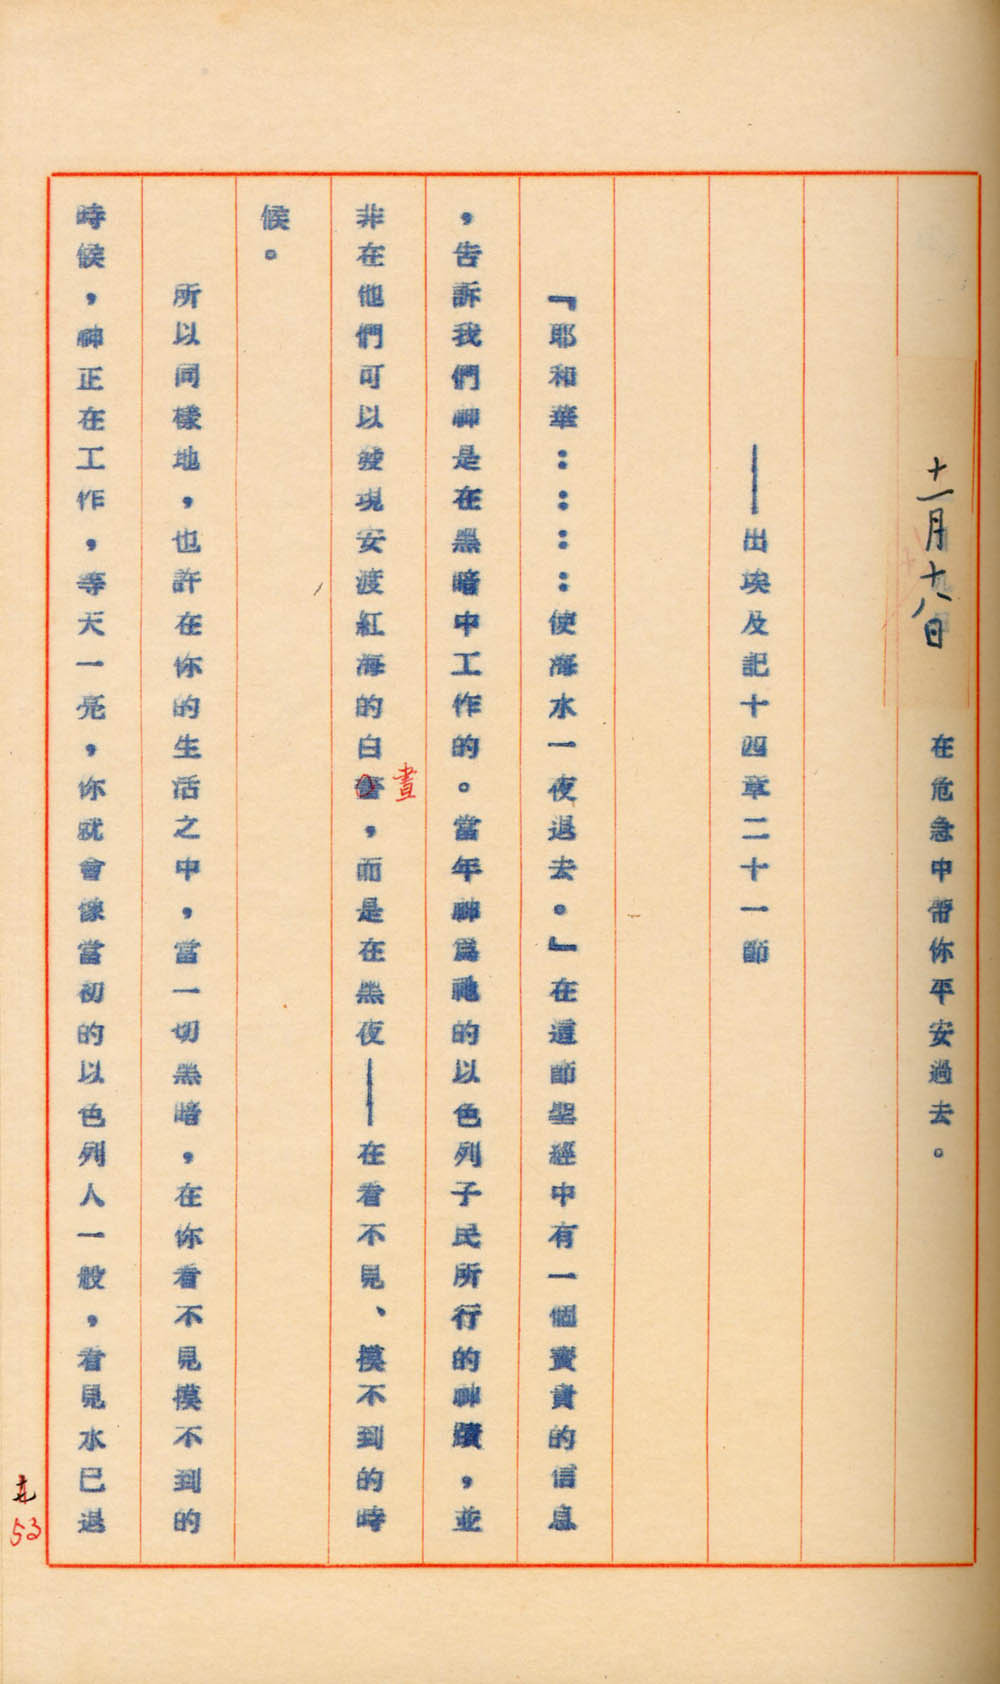 十一月十八日　在危急中帶你平安過去。
——出埃及記十四章二十一節
『耶和華：：：：使海水一夜退去。』在這節聖經中有一個寶貴的信息
，告訴我們神是在黑暗中工作的。當年神爲祂的以色列子民所行的神蹟，並
非在他們可以發現安渡紅海的白晝，而是在黑夜——在看不見、摸不到的時
候。
所以同樣地，也許在你的生活之中，當一切黑暗，在你看不見摸不到的
時候，神正在工作，等天一亮，你就會像當初的以色列人一般，看見水已退
53